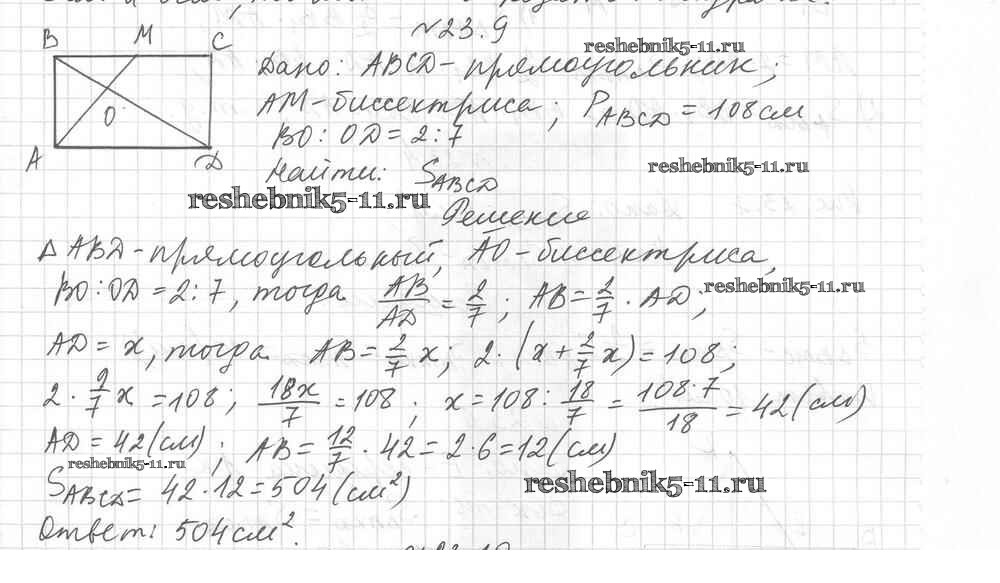 №23.9
B M C
reshebnik5-11.ru
Дано: ABCD-прямоугольник;
AM-биссектриса; P_ABCD = 108см
O
BO : OD = 2:7
A D
reshebnik5-11.ru
Найти: S_ABCD
reshebnik5-11.ru
Решение
Δ ABD-прямоугольный, AO-биссектриса,
BO:OD = 2:7, тогда AB/AD = 2/7; AB = 2/7 · AD;
reshebnik5-11.ru
AD = x, тогда AB = 2/7 x; 2·(x + 2/7 x) = 108;
2 · 9/7 x = 108; 18x/7 = 108; x = 108 : 18/7 = 108·7/18 = 42 (см)
AD = 42(см); AB = 12/7 · 42 = 2·6 = 12 (см)
reshebnik5-11.ru
S_ABCD = 42·12 = 504 (см²)
reshebnik5-11.ru
Ответ: 504 см².